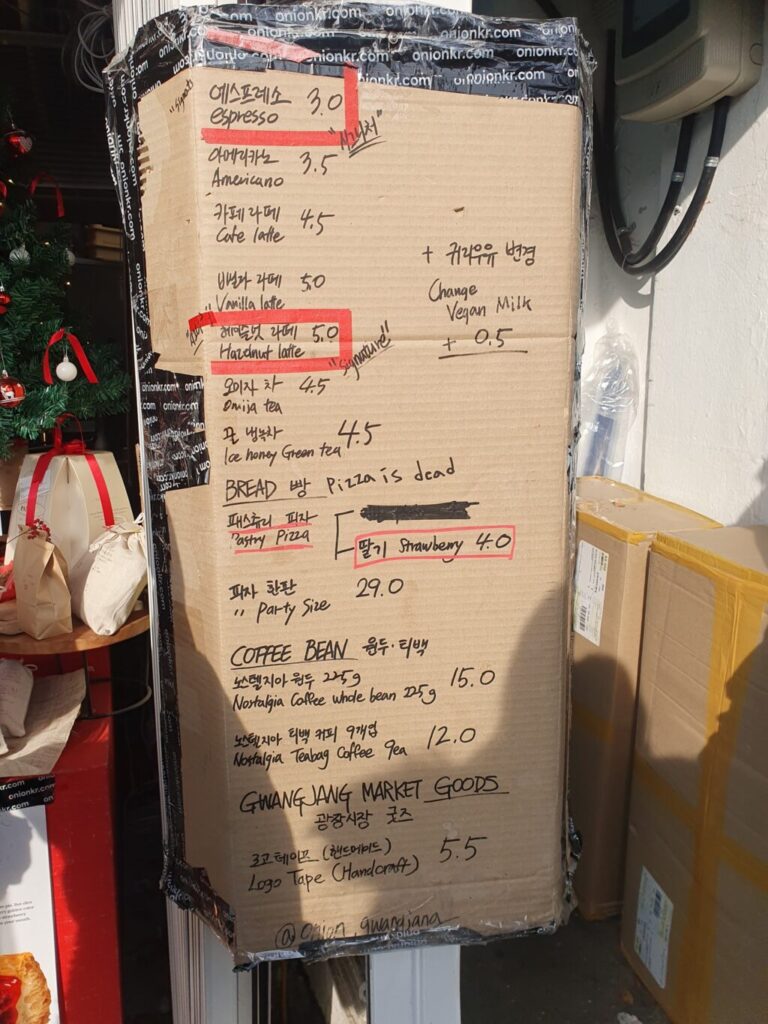 onionkr.com onionkr.com
onionkr.com onionkr.com onionkr.com
에스프레소 3.0
espresso
"시그니처"
아메리카노 3.5
Americano
카페라떼 4.5
Cafe latte
바닐라 라떼 5.0
Vanilla latte
헤이즐넛 라떼 5.0
Hazelnut latte
"Signature"
+ 귀리우유 변경
Change
Vegan Milk
+ 0.5
오미자 차 4.5
Omija tea
꿀 냉녹차 4.5
Ice honey Green tea
BREAD 빵 Pizza is dead
패스츄리 피자
Pastry Pizza
딸기 Strawberry 4.0
피자 한판 29.0
" Party Size
COFFEE BEAN 원두·티백
노스텔지아 원두 225g 15.0
Nostalgia Coffee whole bean 225g
노스텔지아 티백 커피 9개입 12.0
Nostalgia Teabag Coffee 9ea
GWANGJANG MARKET GOODS
광장시장 굿즈
로고테이프 (핸드메이드) 5.5
Logo Tape (Handcraft)
@onion_gwangjang